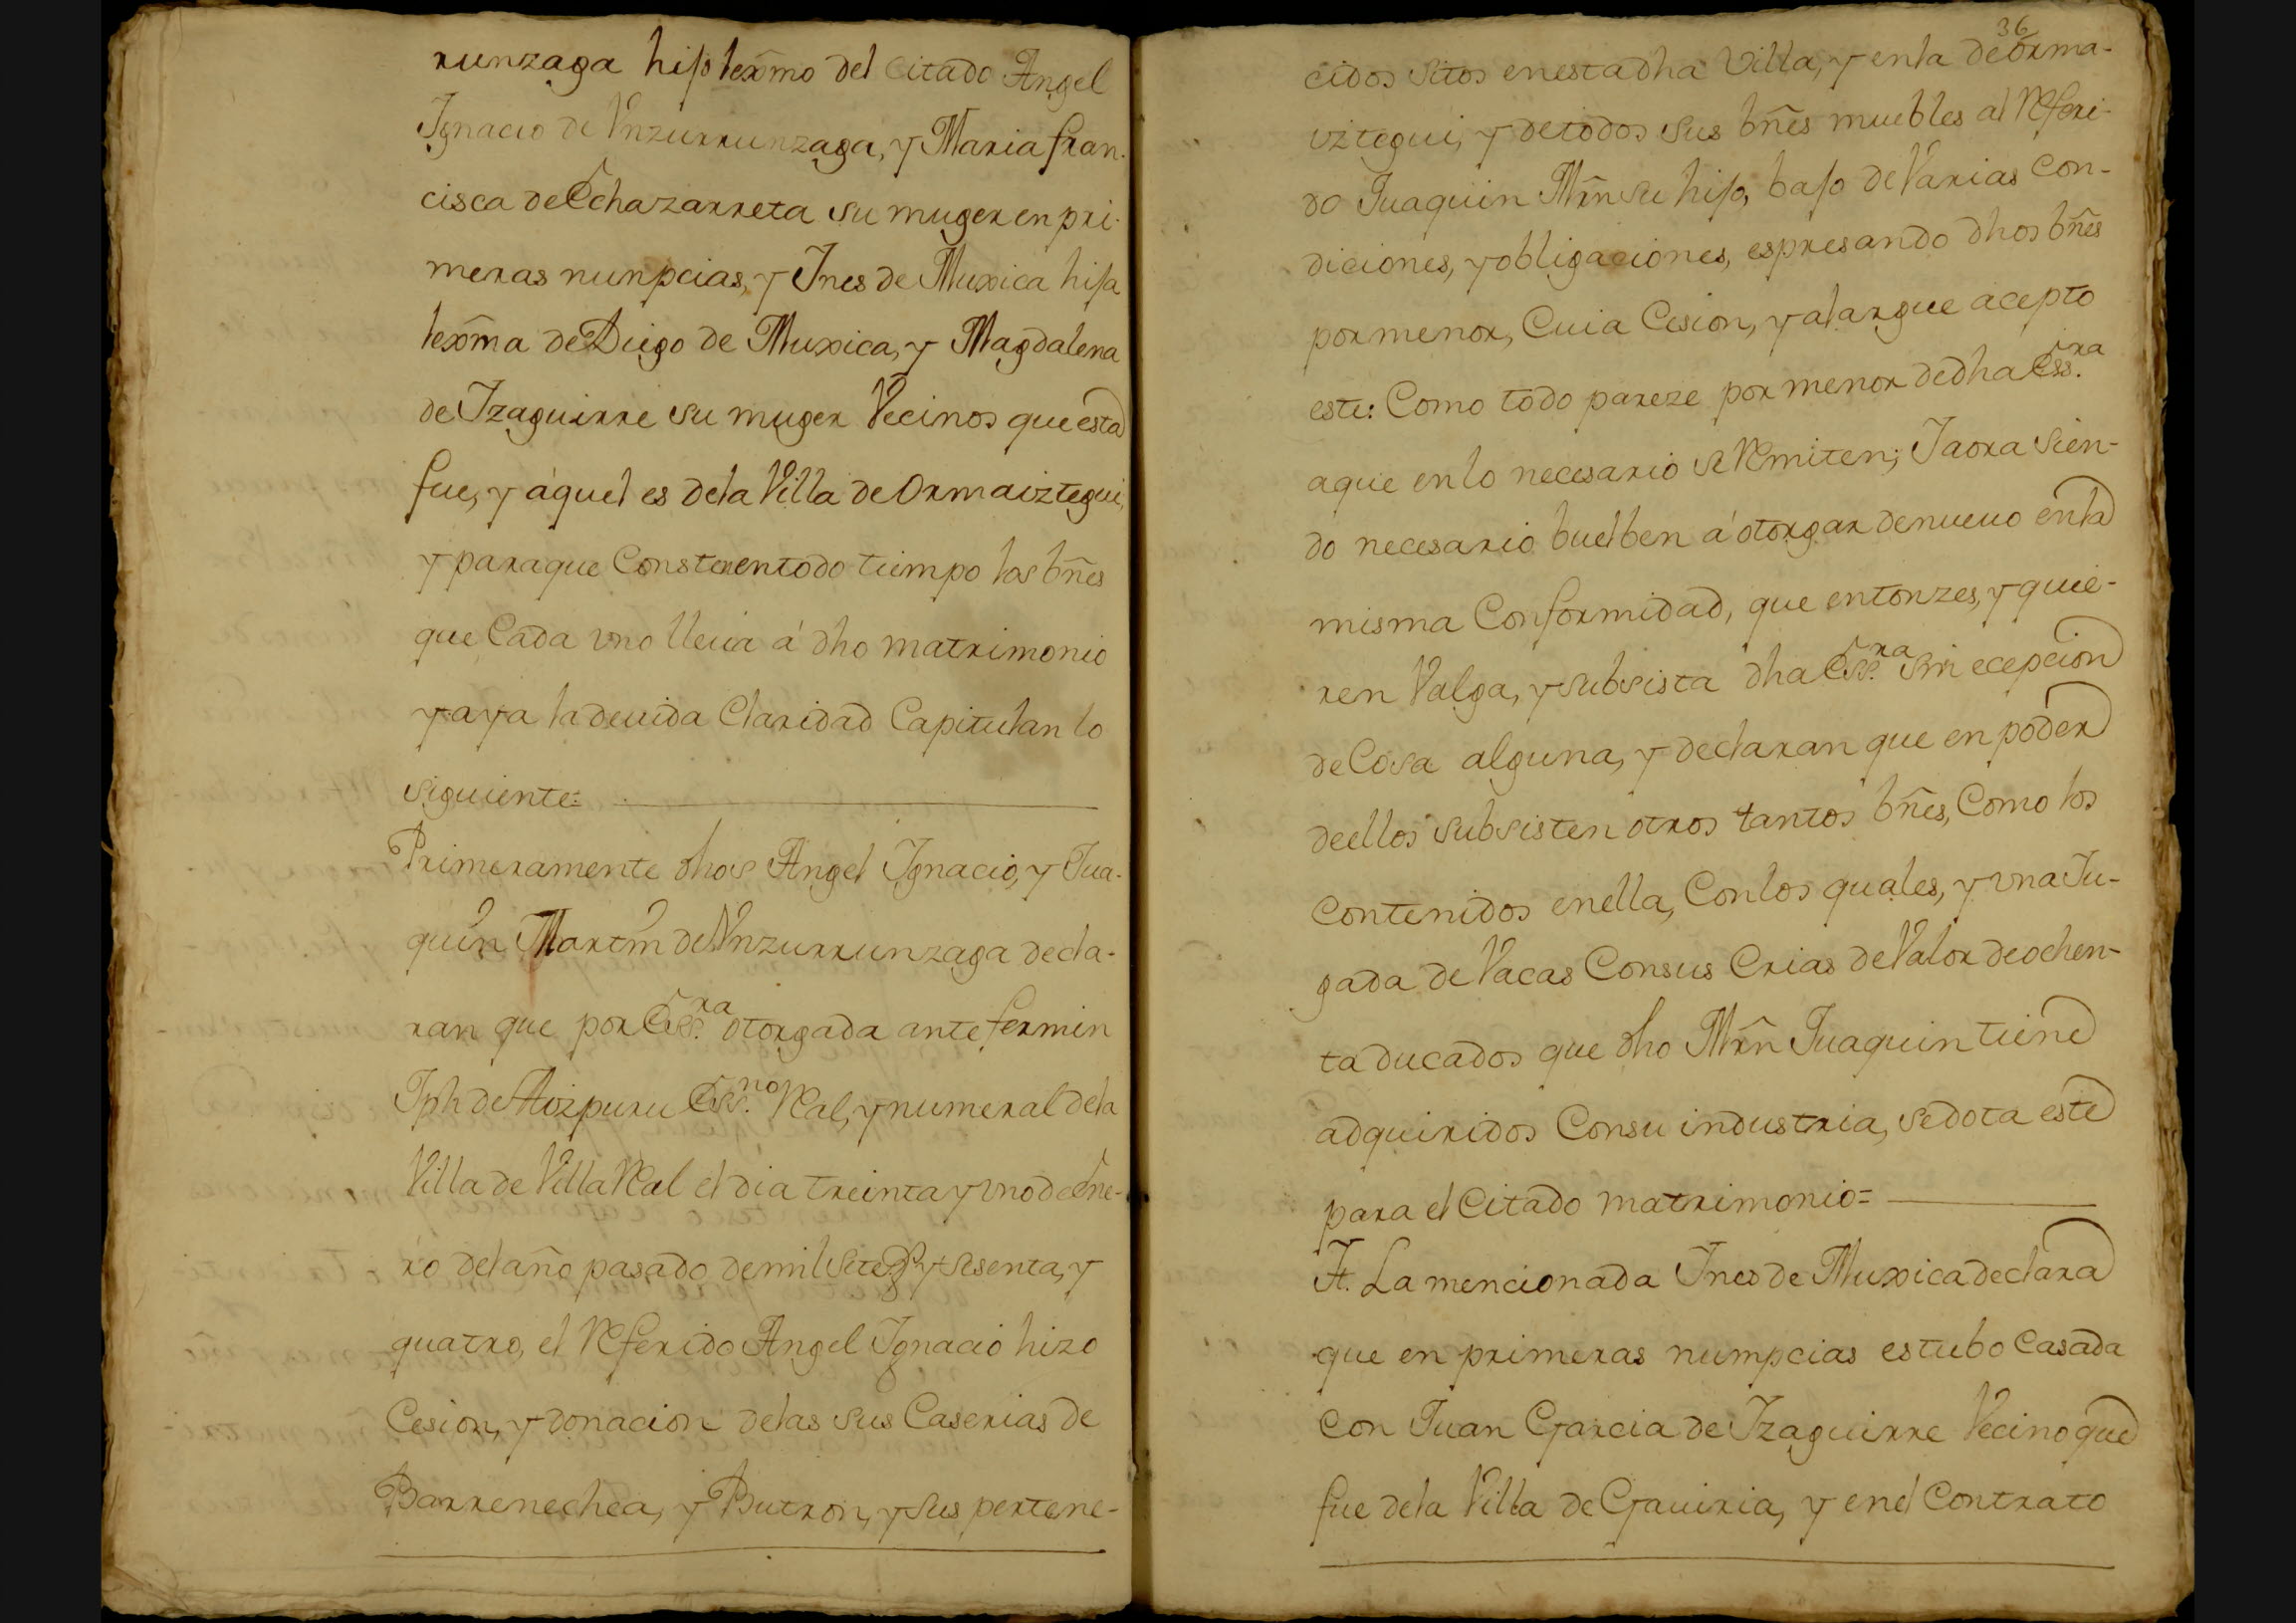 runzaga hijo lexmo del citado Angel
Ignacio de Vnzurrunzaga, y Maria fran-
cisca de Echazarreta su muger en pri-
meras nunpcias, y Ines de Muxica hija
lexma de Diego de Muxica, y Magdalena
de Izaguirre su muger Vecinos que esta
fue, y aquel es dela Villa de Ormaiztegui,
y paraque Conste entodo tiempo los bñes
que Cada vno lleua á dho matrimonio
y aya la deuida Claridad Capitulan lo
siguiente=
Primeramente dhos Angel Ignacio, y Jua-
quin Martin de Vnzurrunzaga decla-
ran que por Essra otorgada ante fermin
Jph de Aizpuru Essno Real, y numeral dela
Villa de Villa Real el dia treinta y vno de Ene-
ro del año pasado de mil setezs y sesenta, y
quatro, el Referido Angel Ignacio hizo
Cesion, y donacion delas sus Caserias de
Barrenechea, y Butron, y sus pertene-
36
cidos sitos enesta dha Villa, y enla de orma-
iztegui, y detodos sus bñes muebles al Referi-
do Juaquin Mrñ su hijo, bajo de Varias Con-
diciones, y obligaciones, espresando dhos bñes
pormenor, Cuia Cesion, y alargue acepto
este: Como todo pareze por menor dedha Essra
aque enlo necesario se Remiten; Iaora sien-
do necesario buelben á otorgar denueuo enla
misma Conformidad, que entonzes, y quie-
ren Valga, y subsista dha Essra sin ecepcion
de Cosa alguna, y declaran que en poder
deellos subsisten otros tantos bñes, Como los
Contenidos enella, Conlos quales, y vna Ju-
gada de Vacas Consus Crias de Valor de ochen-
ta ducados que dho Mrñ Juaquin tiene
adquiridos Consu industria, sedota este
para el Citado matrimonio=
It. La mencionada Ines de Muxica declara
que en primeras numpcias estubo Casada
Con Juan Garcia de Izaguirre Vecino que
fue dela Villa de Gauiria, y enel Contrato